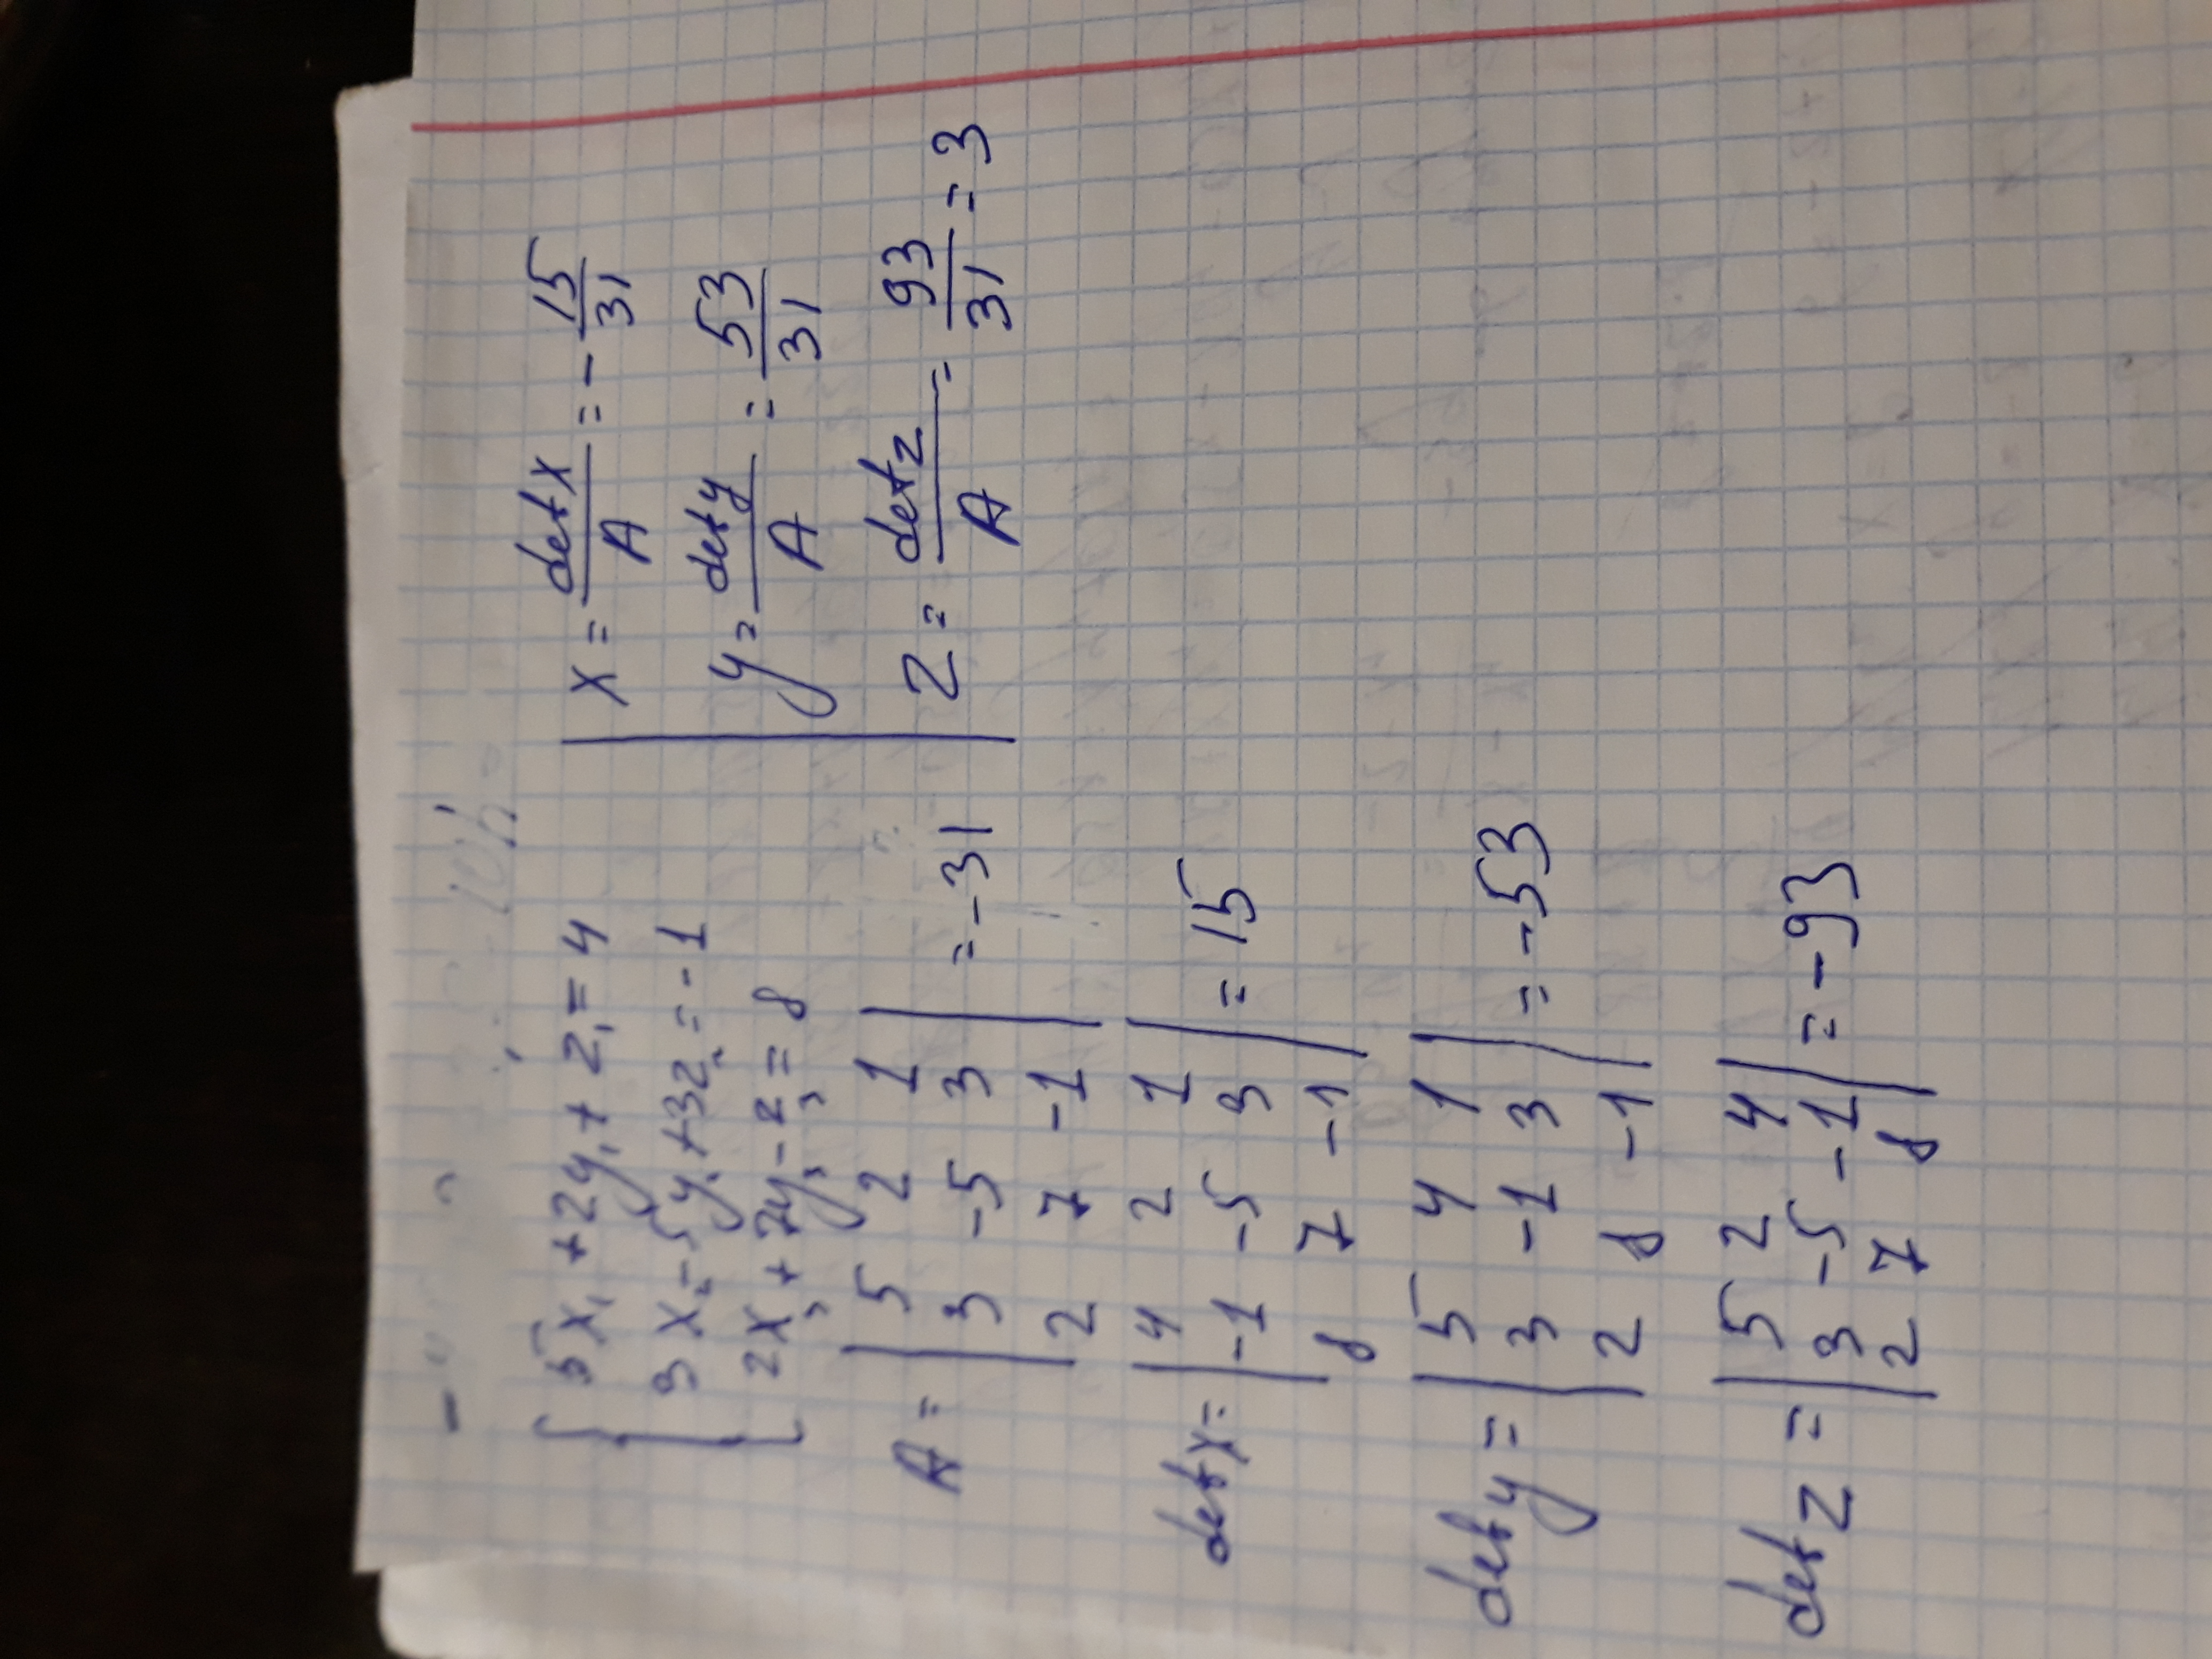 5x₁ + 2y₁ + z₁ = 4
3x₂ - 5y₂ + 3z₂ = -1
2x₃ + 7y₃ - z₃ = 8
A = | 5 2 1 |
| 3 -5 3 | = -31
| 2 7 -1 |
det x = | 4 2 1 |
| -1 -5 3 | = 15
| 8 7 -1 |
det y = | 5 4 1 |
| 3 -1 3 | = -53
| 2 8 -1 |
det z = | 5 2 4 |
| 3 -5 -1 | = -93
| 2 7 8 |
x = det x / A = - 15/31
y = det y / A = 53/31
z = det z / A = 93/31 = 3